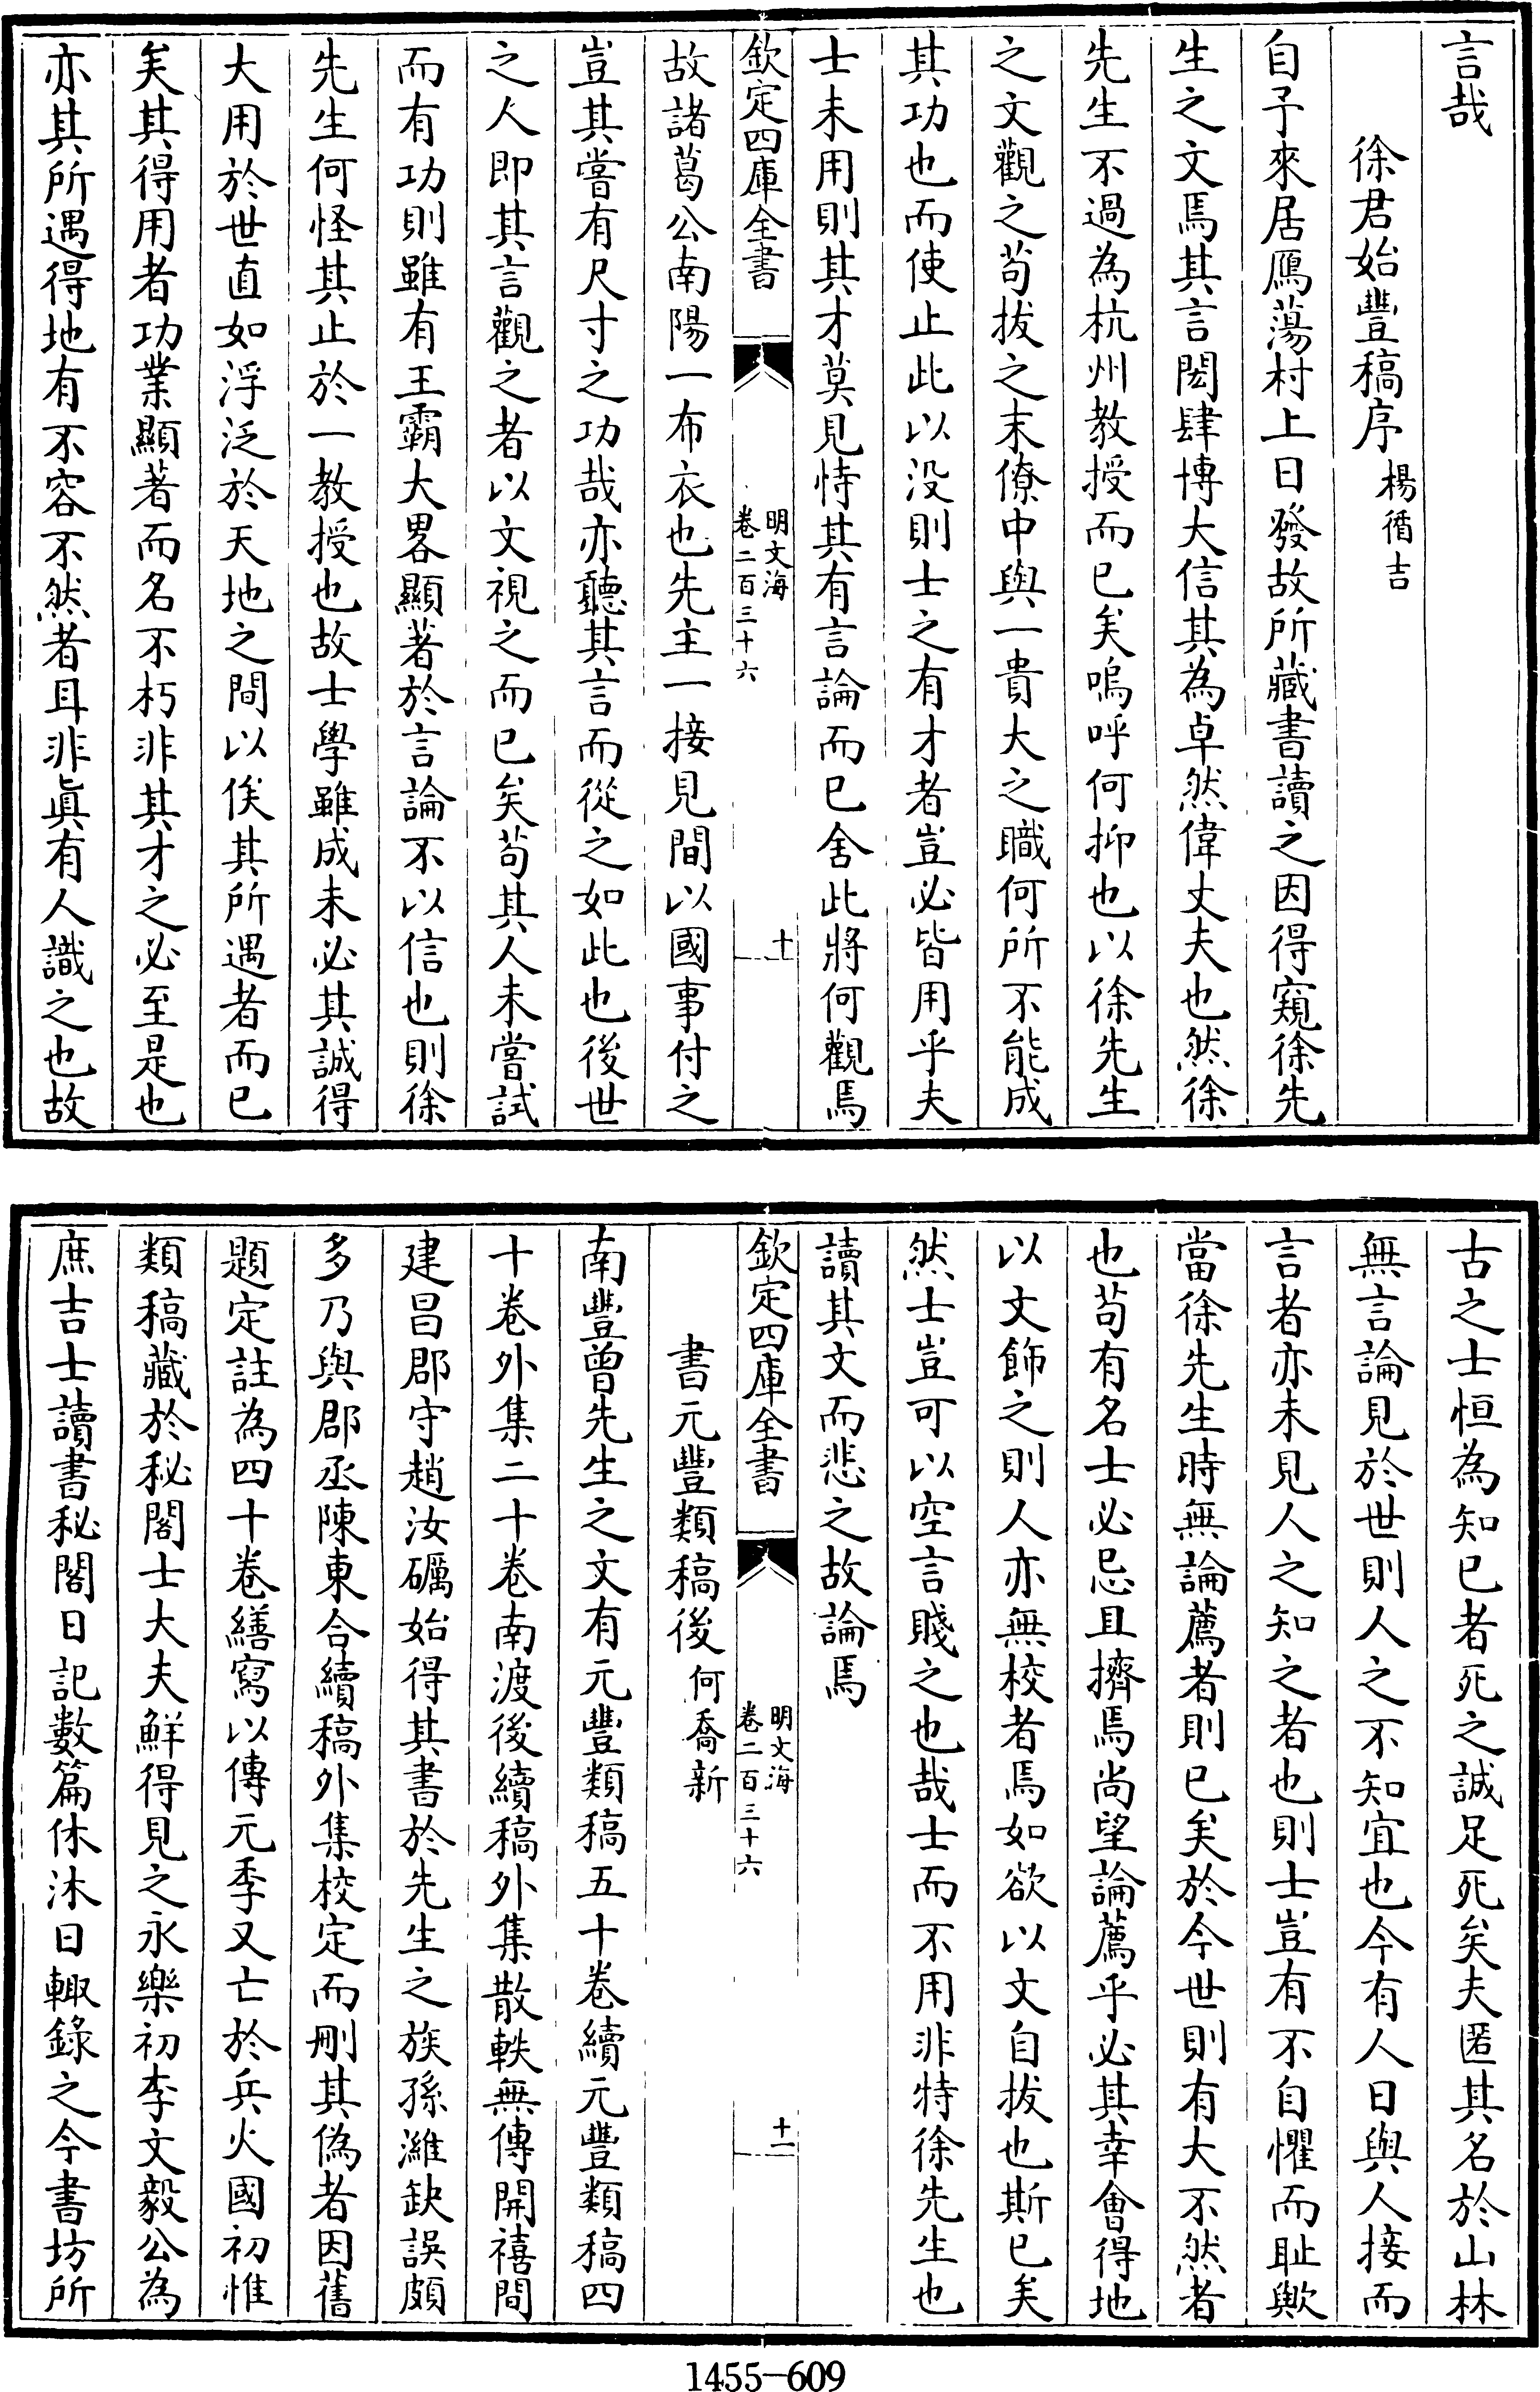 言哉
徐君始豐稿序 楊循吉
自予來居鴈蕩村上日發故所藏書讀之因得窺徐先
生之文焉其言閎肆博大信其為卓然偉丈夫也然徐
先生不過為杭州教授而已矣嗚呼何抑也以徐先生
之文觀之苟拔之末僚中與一貴大之職何所不能成
其功也而使止此以没則士之有才者豈必皆用乎夫
士未用則其才莫見恃其有言論而已舍此將何觀焉
欽定四庫全書
明文海
卷二百三十六
十
故諸葛公南陽一布衣也先主一接見間以國事付之
豈其嘗有尺寸之功哉亦聽其言而從之如此也後世
之人即其言觀之者以文視之而已矣苟其人未嘗試
而有功則雖有王霸大畧顯著於言論不以信也則徐
先生何怪其止於一教授也故士學雖成未必其誠得
大用於世直如浮泛於天地之間以俟其所遇者而已
矣其得用者功業顯著而名不朽非其才之必至是也
亦其所遇得地有不容不然者耳非眞有人識之也故
古之士恒為知已者死之誠足死矣夫匿其名於山林
無言論見於世則人之不知宜也今有人日與人接而
言者亦未見人之知之者也則士豈有不自懼而耻歟
當徐先生時無論薦者則已矣於今世則有大不然者
也苟有名士必忌且擠焉尚望論薦乎必其幸會得地
以文飾之則人亦無校者焉如欲以文自拔也斯已矣
然士豈可以空言賤之也哉士而不用非特徐先生也
讀其文而悲之故論焉
欽定四庫全書
明文海
卷二百三十六
十一
書元豐類稿後 何喬新
南豐曾先生之文有元豐類稿五十卷續元豐類稿四
十卷外集二十卷南渡後續稿外集散軼無傳開禧間
建昌郡守趙汝礪始得其書於先生之族孫濰缺誤頗
多乃與郡丞陳東合續稿外集校定而刪其偽者因舊
題定註為四十卷繕寫以傳元季又亡於兵火國初惟
類稿藏於秘閣士大夫鮮得見之永樂初李文毅公為
庶吉士讀書秘閣日記數篇休沐日輙錄之今書坊所
1455-609